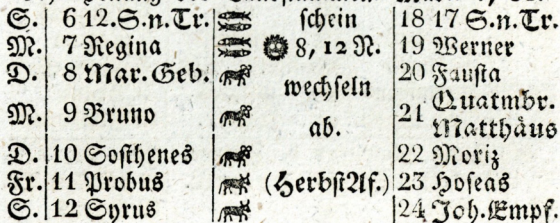 S. 6 12. S. n. Tr. schein 18 17 S. n. Tr.
M. 7 Regina 8, 12 N. 19 Werner
D. 8 Mar. Geb. wechseln 20 Fausta
M. 9 Bruno ab. 21 Quatmbr. Matthäus
D. 10 Sosthenes 22 Moriz
Fr. 11 Probus (HerbstAf.) 23 Hoseas
S. 12 Syrus 24 Joh. Empf.